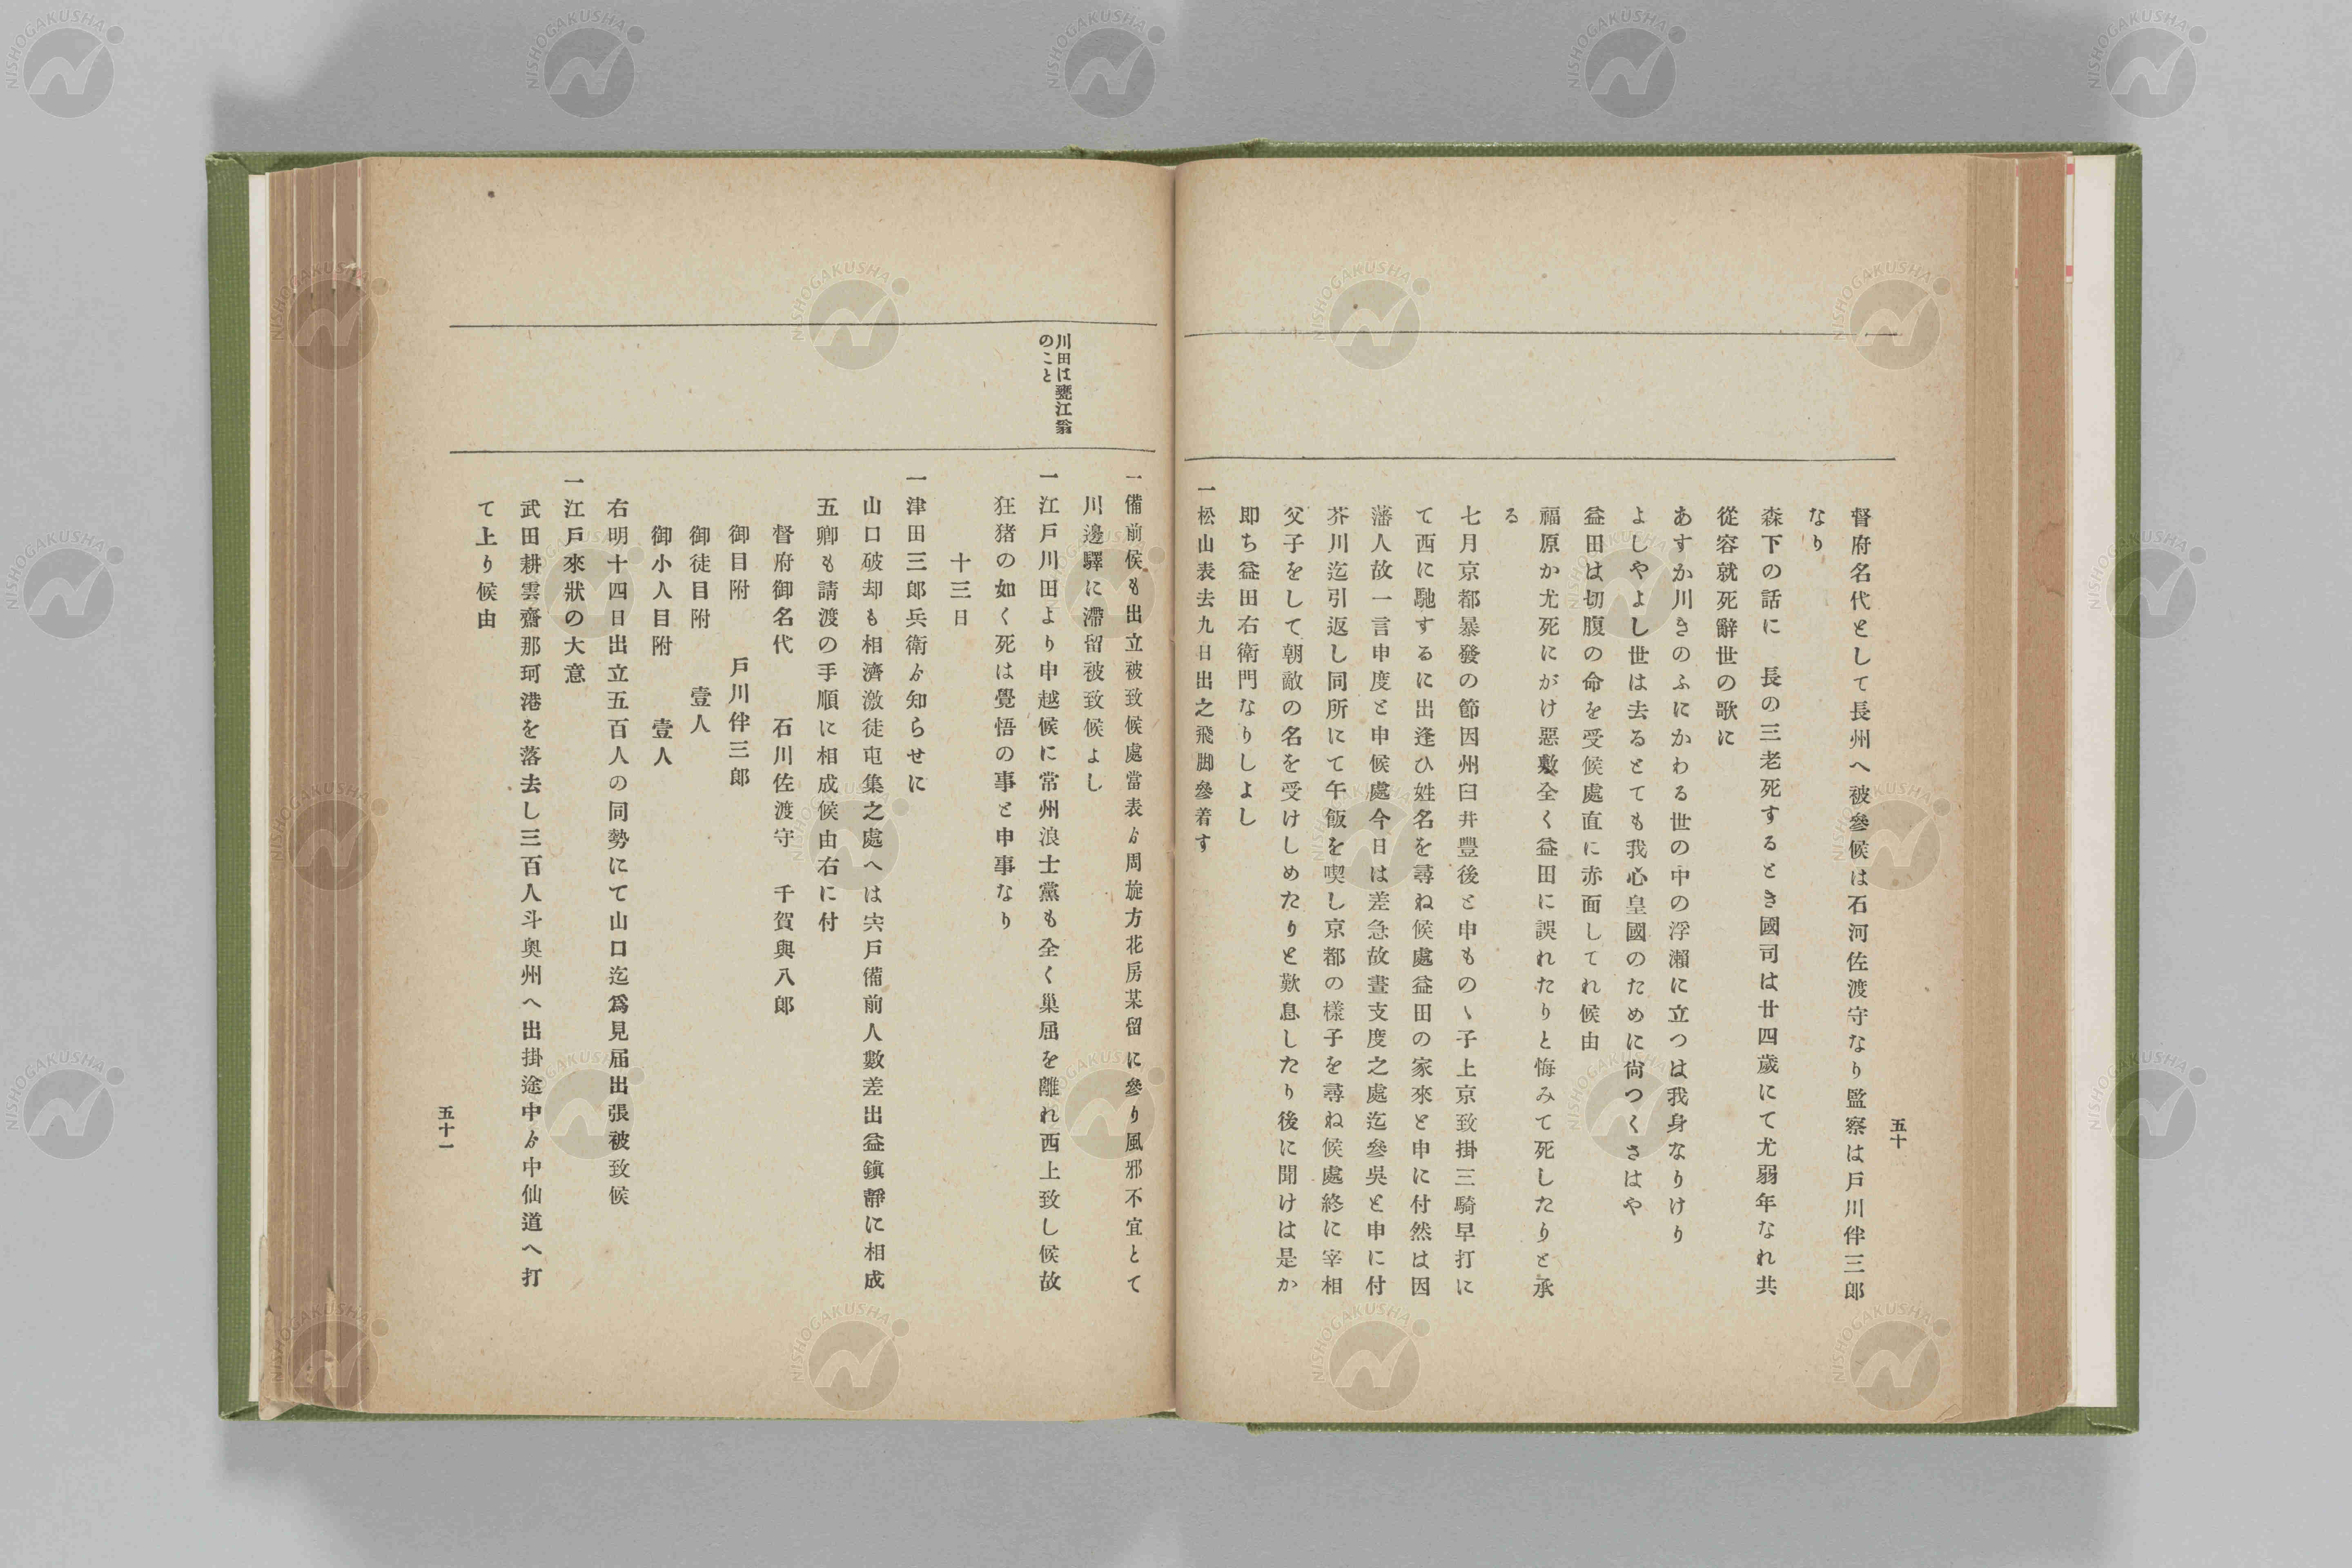 督府名代として長州へ被參候は石河佐渡守なり監察は戸川伴三郎
なり
森下の話に　長の三老死するとき國司は廿四歲にて尤弱年なれ共
從容就死辭世の歌に
あすか川きのふにかわる世の中の浮瀨に立つは我身なりけり
よしやよし世は去るとても我心皇國のために尙つくさはや
益田は切腹の命を受候處直に赤面してれ候由
福原か尤死にがけ惡敷全く益田に誤れたりと悔みて死したりと承
る
七月京都暴發の節因州臼井豐後と申もの〻子上京致掛三騎早打に
て西に馳するに出逢ひ姓名を尋ね候處益田の家來と申に付然は因
藩人故一言申度と申候處今日は差急故晝支度之處迄參吳と申に付
芥川迄引返し同所にて午飯を喫し京都の樣子を尋ね候處終に宰相
父子をして朝敵の名を受けしめたりと歎息したり後に聞けは是か
卽ち益田右衛門なりしよし
一松山表去九日出之飛脚參着す
五十
川田は甕江翁
のこと
一備前侯も出立被致候處當表ゟ周旋方花房某留に參り風邪不宜とて
川邊驛に滯留被致候よし
一江戸川田より申越候に常州浪士黨も全く巢屈を離れ西上致し候故
狂猪の如く死は覺悟の事と申事なり
十三日
一津田三郞兵衛ゟ知らせに
山口破却も相濟激徒屯集之處へは宍戸備前人數差出益鎭靜に相成
五卿も請渡の手順に相成候由右に付
督府御名代　石川佐渡守　千賀與八郎
御目附　戸川伴三郎
御徒目附　壹人
御小人目附　壹人
右明十四日出立五百人の同勢にて山口迄爲見届出張被致候
一江戸來狀の大意
武田耕雲齋那珂港を落去し三百人斗奥州へ出掛途中ゟ中仙道へ打
て上り候由
五十一
NISHOGAKUSHA